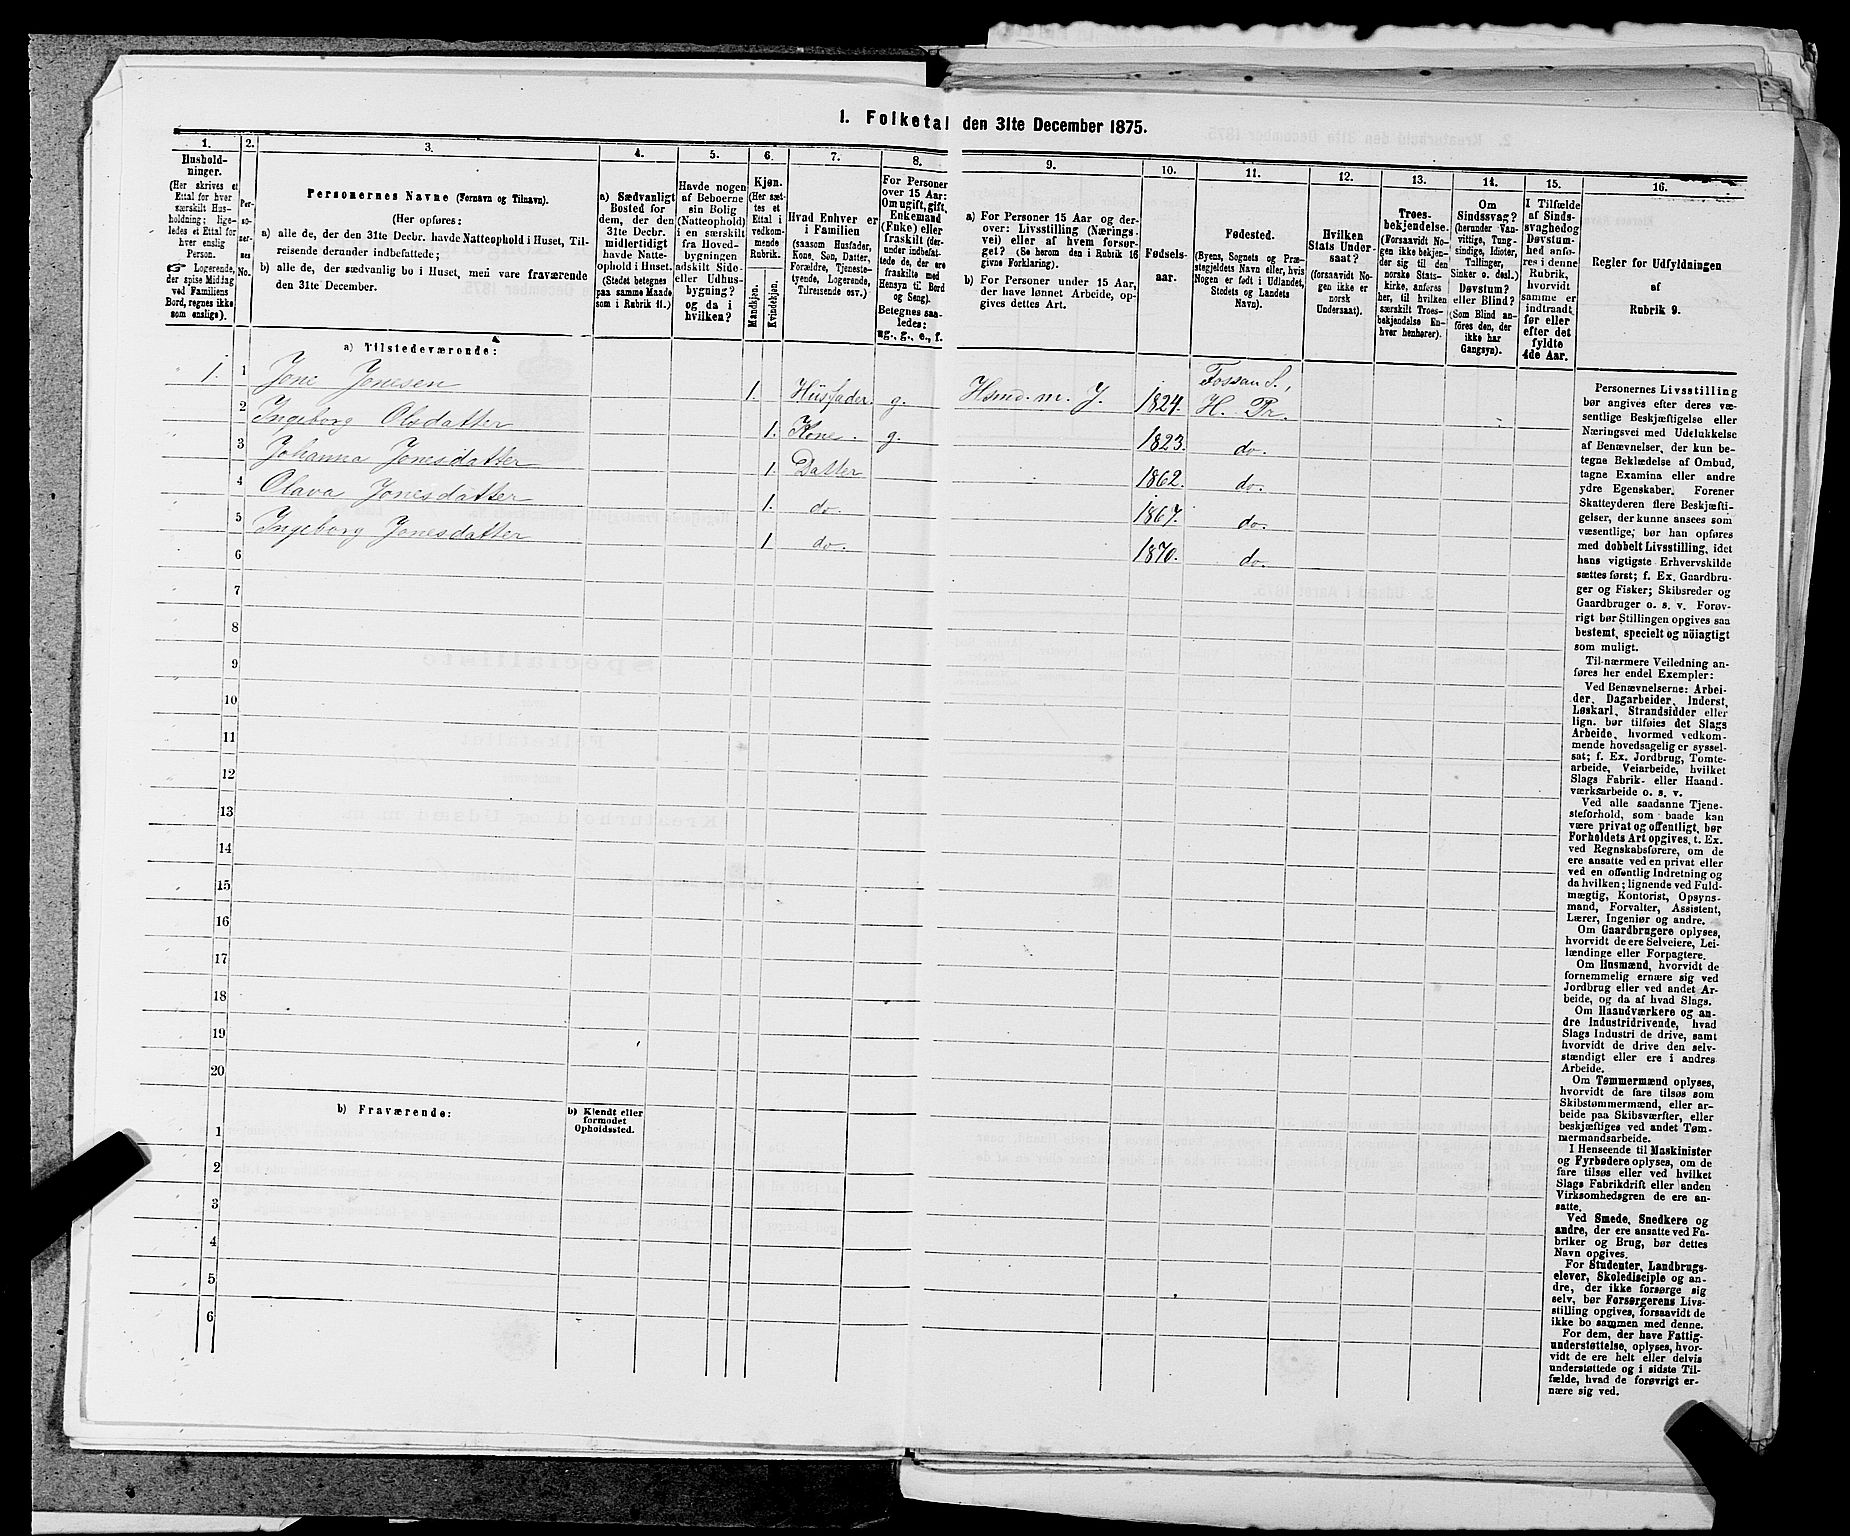 1. Folketal den 31te December 1875.
1. 2. 3. 4. 5. 6. 7. 8. 9. 10. 11. 12. 13. 14. 15. 16.
Husholdninger.
(Her skrives et
Ettal for hver
særskilt Husholdning;
ligeledes et Ettal for
hver enslig
Person.
☞ Logerende,
der spise Middag
ved Familiens
Bord, regnes ikke
som enslige).
Personernes No.
Personernes Navne (Fornavn og Tilnavn).
(Her opføres:
a) alle de, der den 31te Decbr. havde Natteophold i Huset, Tilreisende
derunder indbefattede;
b) alle de, der sædvanlig bo i Huset, men vare fraværende
den 31te December.
a) Sædvanligt
Bosted for
dem, der den
31te Decbr.
midlertidigt
havde Natteophold
i Huset.
(Stedet betegnes
paa samme Maade
som i Rubrik 11.)
Havde nogen
af Beboerne
sin Bolig
(Natteophold)
i en særskilt
fra Hovedbygningen
adskilt Side-
eller Udhusbygning?
og da i
hvilken?
Kjøn.
(Her sættes
et
Ettal i
vedkommende
Rubrik.
Mandkjøn.
Kvindekjøn.
Hvad Enhver er
i Familien
(saasom Husfader,
Kone, Søn, Datter,
Forældre, Tjenestetyende,
Logerende,
Tilreisende osv.)
For Personer
over 15 Aar:
Om ugift, gift,
Enkemand
(Enke) eller
fraskilt (derunder
indbefattede
de, der ere
fraskilte med
Hensyn til Bord
og Seng).
Betegnes saaledes:
ug., g., e., f.
a) For Personer 15 Aar og derover:
Livsstilling (Næringsvei)
eller af hvem forsørget?
(Se herom den i Rubrik 16
givne Forklaring).
b) For Personer under 15 Aar,
der have lønnet Arbeide, opgives
dettes Art.
Fødselsaar.
Fødested.
(Byens, Sognets og Præstegjeldets
Navn eller, hvis
Nogen er født i Udlandet,
Stedets og Landets
Navn).
Hvilken
Stats Undersaat?
(forsaavidt Nogen
ikke er
norsk
Undersaat).
Troesbekjendelse.
(Forsaavidt Nogen
ikke bekjender
sig til den
norske Statskirke,
anføres
her, til hvilken
særskilt Troesbekjendelse
Enhver
henhører).
Om
Sindssvag?
(herunder Vanvittige,
Tungsindige,
Idioter,
Tullinger,
Sinker o. desl.)
Døvstum?
eller Blind?
(Som Blind anføres
den, der
ikke har
Gangsyn).
I Tilfælde
af Sindssvaghed
og
Døvstumhed
anføres
i denne
Rubrik,
hvorvidt
samme er
indtraadt
før eller
efter det
fyldte
4de Aar.
Regler for Udfyldningen
af
Rubrik 9.
a) Tilstedeværende:
1. 1 Jone Jonesen 1. Husfader. g. Hsmd. m. J. 1824. Fossan S., H. Pr.
2 Ingeborg Olsdatter 1. Kone. g. 1823. do.
3 Johanna Jonesdatter 1. Datter 1862. do.
4 Olava Jonesdatter 1. do. 1867. do.
5 Ingeborg Jonesdatter 1. do. 1870. do.
6
7
8
9
10
11
12
13
14
15
16
17
18
19
20
b) Fraværende:
b) Kjendt eller
formodet
Opholdssted.
1
2
3
4
5
6
Personernes Livsstilling
bør angives efter deres væsentlige
Beskjæftigelse eller
Næringsvei med Udelukkelse
af Benævnelser, der kun betegne
Beklædelse af Ombud,
tagne Examina eller andre
ydre Egenskaber. Forener
Skatteyderen flere Beskjæftigelser,
der kunne ansees som
væsentlige, bør han opføres
med dobbelt Livsstilling, idet
hans vigtigste Erhvervskilde
sættes først; f. Ex. Gaardbruger
og Fisker; Skibsreder og
Gaardbruger o. s. v. Forøvrigt
bør Stillingen opgives saa
bestemt, specielt og nöiagtigt
som muligt.
Til nærmere Veiledning anføres
her endel Exempler:
Ved Benævnelserne: Arbeider,
Dagarbeider, Inderst,
Løskarl, Strandsidder eller
lign. bør tilføies det Slags
Arbeide, hvormed vedkommende
hovedsagelig er sysselsat;
f. Ex. Jordbrug, Tomtearbeide,
Veiarbeide, hvilket
Slags Fabrik- eller Haandværksarbeide
o. s. v.
Ved alle saadanne Tjenesteforhold,
som baade kan
være privat og offentligt, bør
Forholdets Art opgives, t. Ex.
ved Regnskabsførere, om de
ere ansatte ved en privat eller
ved en offentlig Indretning og
da hvilken; lignende ved Fuldmægtig,
Kontorist, Opsynsmand,
Forvalter, Assistent,
Lærer, Ingeniør og andre.
Om Gaardbrugere oplyses,
hvorvidt de ere Selveiere, Leilændinge
eller Forpagtere.
Om Husmænd, hvorvidt de
fornemmelig ernære sig ved
Jordbrug eller ved andet Arbeide,
og da af hvad Slags.
Om Haandværkere og andre
Industridrivende, hvad
Slags Industri de drive, samt
hvorvidt de drive den selvstændigt
eller ere i andres
Arbeide.
Om Tømmermænd oplyses,
hvorvidt de fare tilsøs som
Skibstømmermænd, eller arbeide
paa Skibsværfter, eller
beskjæftiges ved andet Tømmermandsarbeide.
I Henseende til Maskinister
og Fyrbødere oplyses, om de
fare tilsøs eller ved hvilket
Slags Fabrikdrift eller anden
Virksomhedsgren de ere ansatte.
Ved Smede, Snedkere og
andre, der ere ansatte ved Fabriker
og Brug, bør dettes
Navn opgives.
For Studenter, Landbrugselever,
Skoledisciple og andre,
der ikke forsørge sig
selv, bør Forsørgerens Livsstilling
opgives, forsaavidt de
ikke bo sammen med denne.
For dem, der have Fattigunderstøttelse,
oplyses, hvorvidt
de ere helt eller delvis
understøttede og i sidste Tilfælde,
hvad de forøvrigt ernære
sig ved.